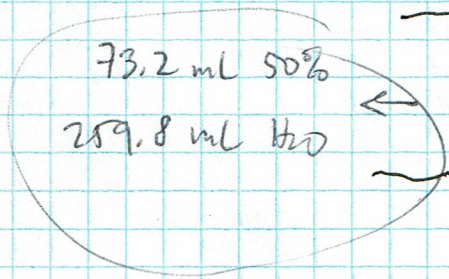 73.2 mL 50%
259.8 mL H2O